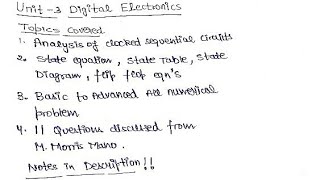 Unit-3 Digital Electronics
Topics Covered
1. Analysis of clocked sequential circuits
2. State equation, State Table, State
Diagram, flip flop eqn's
3. Basic to Advanced All numerical
problem
4. 11 Questions discussed from
M. Morris Mano.
Notes in Description!!